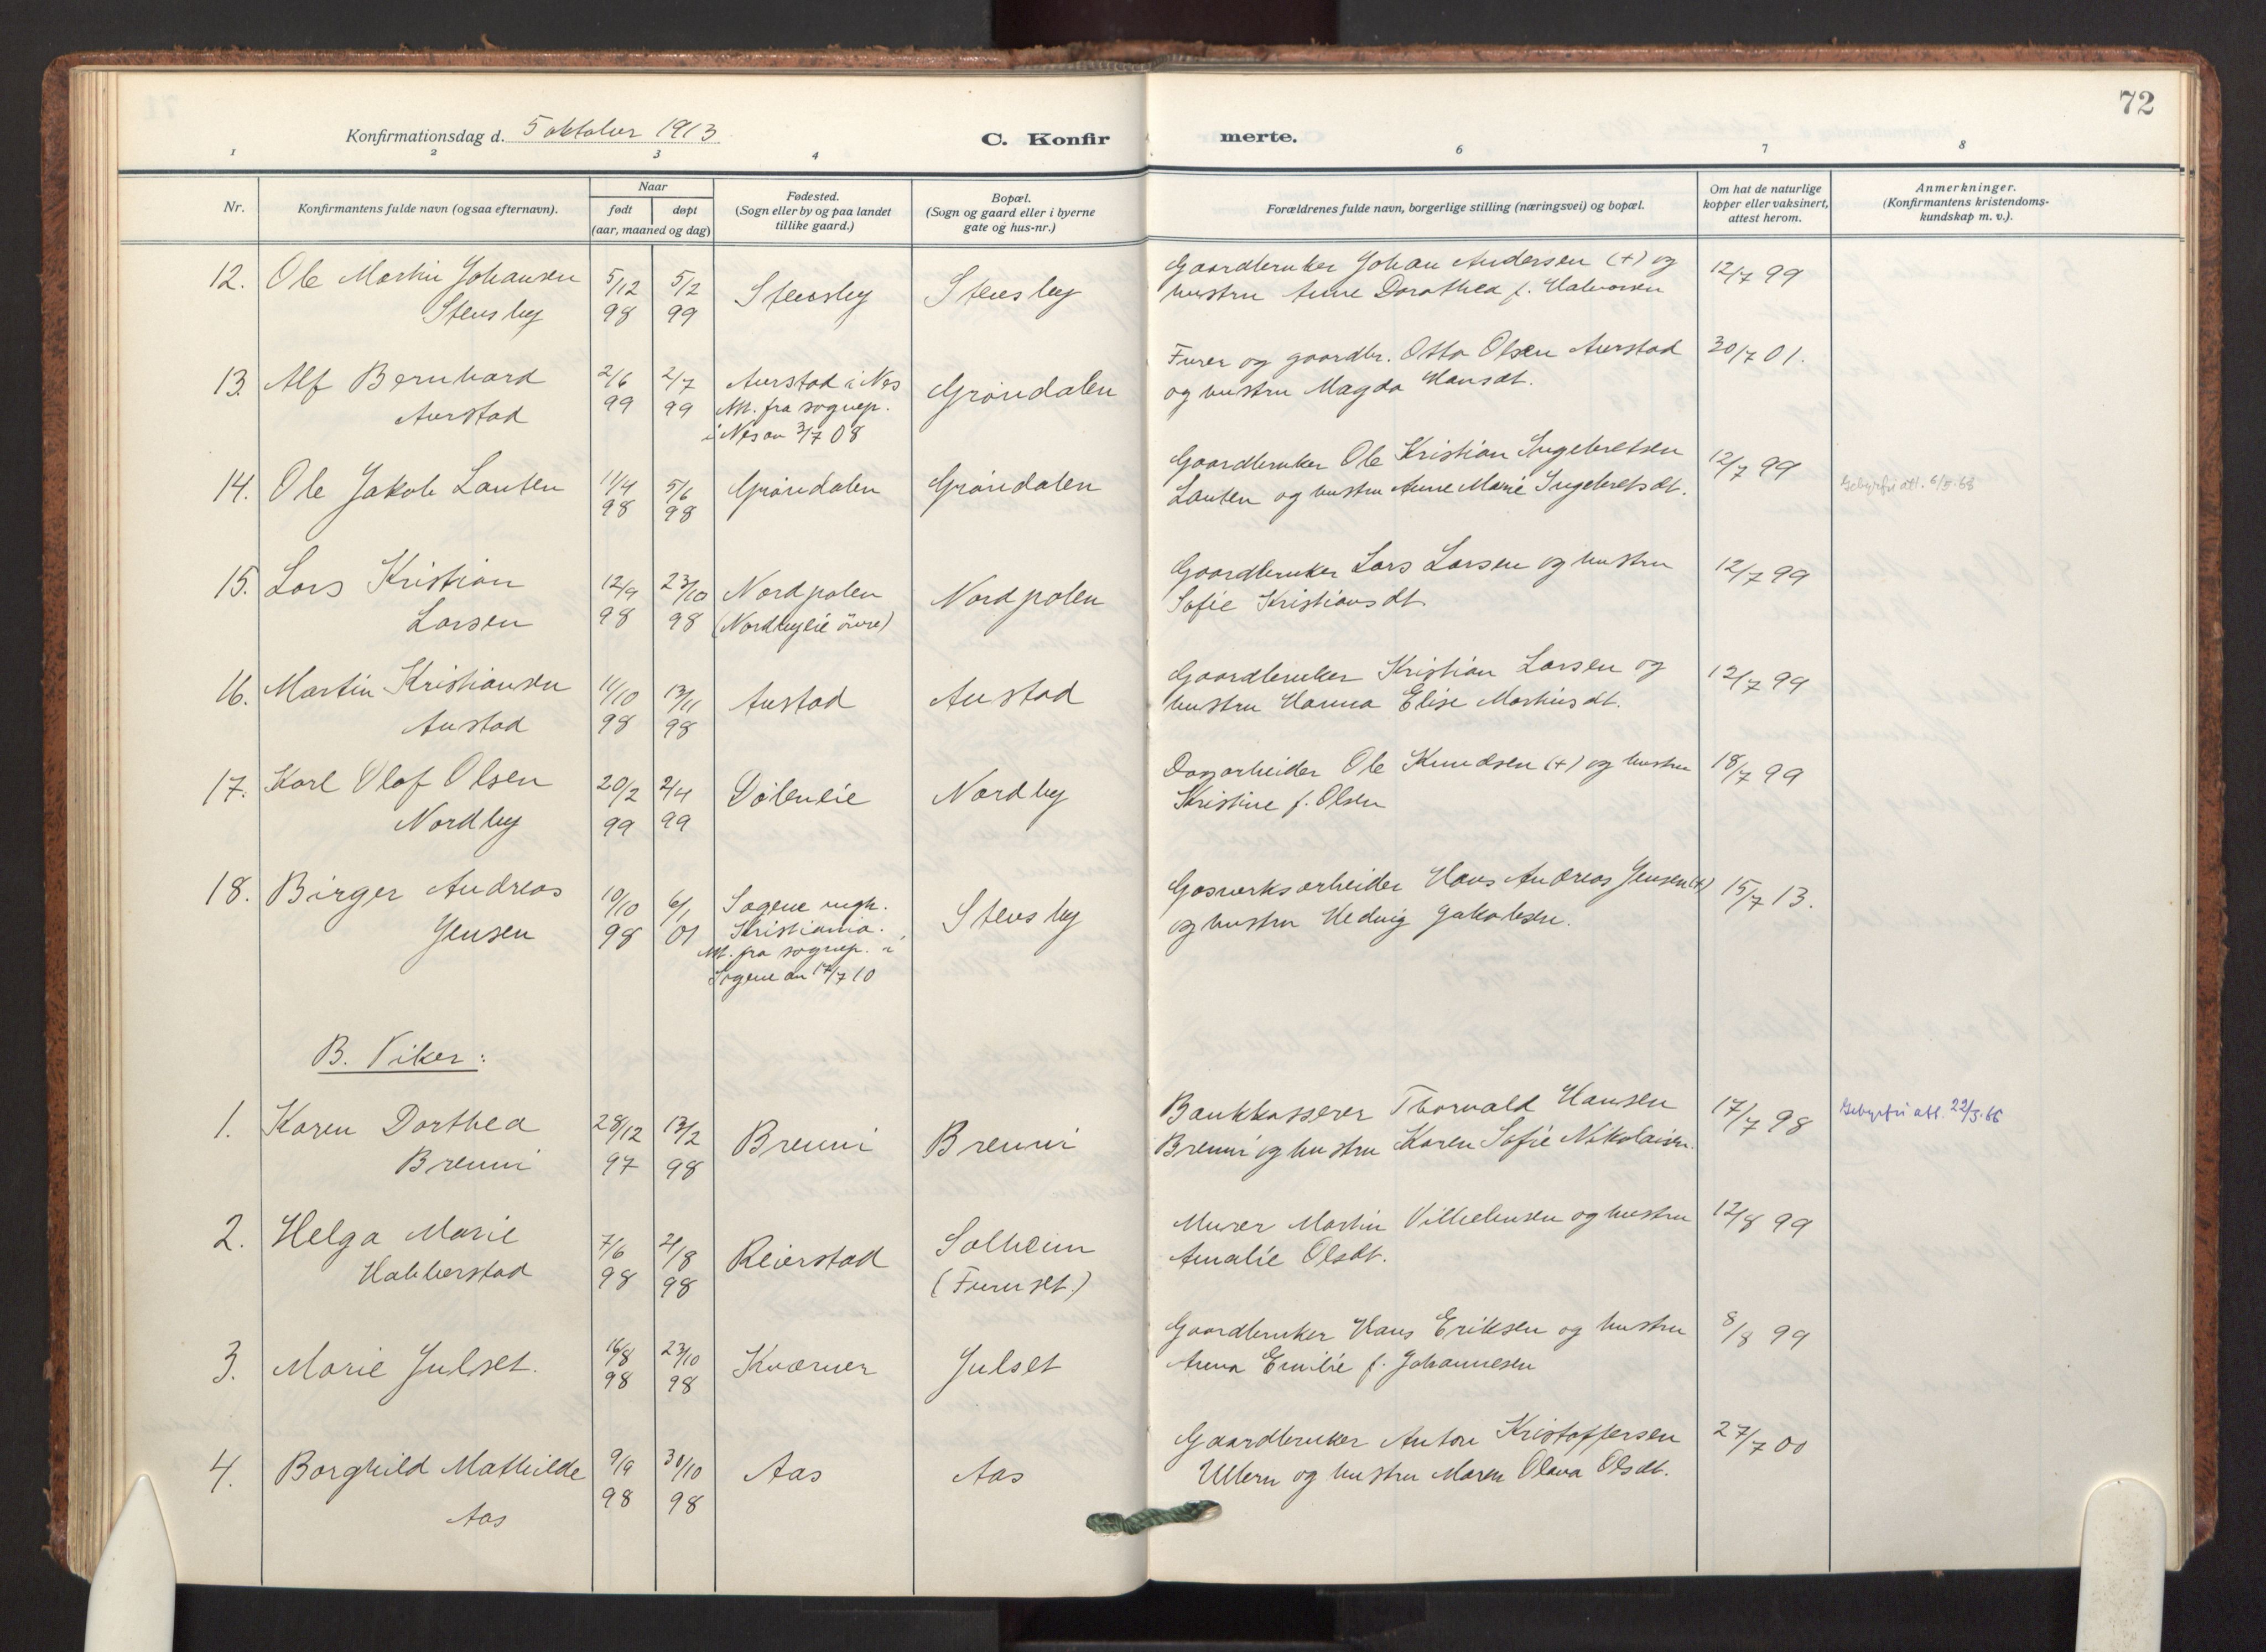 72
Konfirmationsdag d. 5 oktober 1913
C. Konfir merte.
1 2 3 4 6 7 8
Nr.
Konfirmantens fulde navn (ogsaa efternavn).
Naar
født døpt
(aar, maaned og dag)
Fødested.
(Sogn eller by og paa landet
tillike gaard.)
Bopæl.
(Sogn og gaard eller i byerne
gate og hus-nr.)
Forældrenes fulde navn, borgerlige stilling (næringsvei) og bopæl.
Om hat de naturlige
kopper eller vaksinert,
attest herom.
Anmerkninger.
(Konfirmantens kristendoms-
kundskap m. v.).
12. Ole Martin Johansen 5/12 5/2 Stensby Stensby Gaardbruker Johan Andersen (+) og 12/7 99
Stensby 98 99 hustru Anne Dorathea f. Halvorsen
13. Alf Bernhard 2/6 2/7 Aurstad i Nes Grøndalen Furer og gaardbr. Otto Olsen Aurstad 30/7 01.
Aurstad 99 99 Att. fra sognep. og hustru Magda Hansdt.
i Nes av 3/7 08
14. Ole Jakob Lauten 11/4 5/6 Grøndalen Grøndalen Gaardbruker Ole Kristian Ingebretsen 12/7 99
98 98 Lauten og hustru Anne Marie Ingebretsdt. Gebyrfri att. 6/5.68
15. Lars Kristian 12/9 23/10 Nordpolen Nordpolen Gaardbruker Lars Larsen og hustru 12/7 99
Larsen 98 98 (Nordbyeie övre) Sofie Kristiansdt.
16. Martin Kristiansen 11/10 13/11 Austad Austad Gaardbruker Kristian Larsen og 12/7 99
Austad 98 98 hustru Hanna Elise Martinsdt.
17. Karl Olaf Olsen 20/2 2/4 Døleneie Nordby Dagarbeider Ole Knudsen (+) og hustru 18/7 99
Nordby 99 99 Kristine f. Olsen
18. Birger Andreas 10/10 6/1 Sagene mgh. Stensby Gasverksarbeider Hans Andreas Jensen (+) 15/7 13.
Jensen 98 01 Kristiania. og hustru Hedvig Jakobsen.
Att. fra sognep. i
Sagene av 17/7 10
B. Piker:
1. Karen Dorthea 28/12 13/2 Brenni Brenni Bankkasserer Thorvald Hansen 17/7 98 Gebyrfri att. 22/3.66
Brenni 97 98 Brenni og hustru Karen Sofie Nikolaisen.
2. Helga Marie 7/6 21/8 Reierstad Solheim Murer Martin Vilhelmsen og hustru 12/8 99
Habberstad 98 98 (Furuset.) Amalie Olsdt.
3. Marie Julset. 16/8 23/10 Kværner Julset Gaardbruker Hans Eriksen og hustru 8/8 99
98 98 Anna Emilie f. Johannesen
4. Borghild Mathilde 9/9 30/10 Aas Aas Gaardbruker Anton Kristoffersen 27/7 00
Aas 98 98 Ullern og hustru Maren Olava Olsdt.